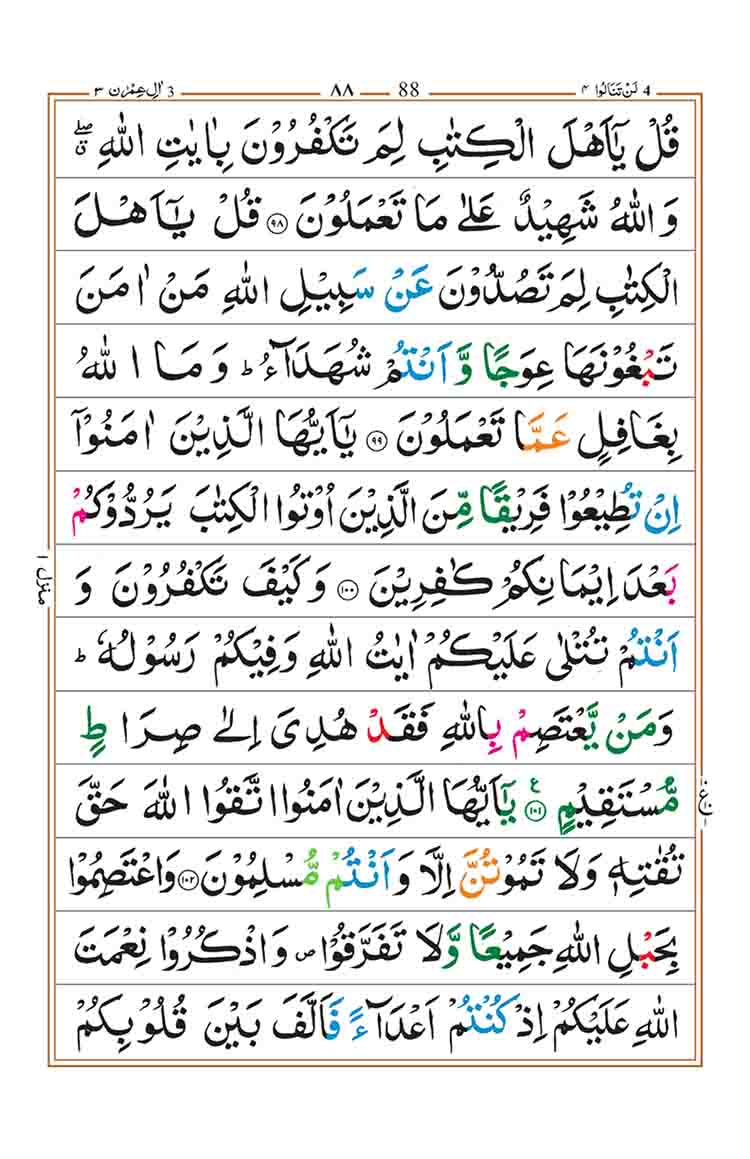 4 لَنْ تَنَالُوا ۴ 88 ۸۸ 3 اٰلِ عِمْرٰن ۳
قُلْ يٰۤاَهْلَ الْكِتٰبِ لِمَ تَكْفُرُوْنَ بِاٰيٰتِ اللّٰهِ ۖق
وَ اللّٰهُ شَهِيْدٌ عَلٰى مَا تَعْمَلُوْنَ ۝۹۸ قُلْ يٰۤاَهْلَ
الْكِتٰبِ لِمَ تَصُدُّوْنَ عَنْ سَبِيْلِ اللّٰهِ مَنْ اٰمَنَ
تَبْغُوْنَهَا عِوَجًا وَّ اَنْتُمْ شُهَدَآءُ ؕ وَ مَا اللّٰهُ
بِغَافِلٍ عَمَّا تَعْمَلُوْنَ ۝۹۹ يٰۤاَيُّهَا الَّذِيْنَ اٰمَنُوْۤا
اِنْ تُطِيْعُوْا فَرِيْقًا مِّنَ الَّذِيْنَ اُوْتُوا الْكِتٰبَ يَرُدُّوْكُمْ
بَعْدَ اِيْمَانِكُمْ كٰفِرِيْنَ ۝۱۰۰ وَ كَيْفَ تَكْفُرُوْنَ وَ
منزل ۱
اَنْتُمْ تُتْلٰى عَلَيْكُمْ اٰيٰتُ اللّٰهِ وَ فِيْكُمْ رَسُوْلُهٗ ؕ
وَ مَنْ يَّعْتَصِمْ بِاللّٰهِ فَقَدْ هُدِىَ اِلٰى صِرَاطٍ
مُّسْتَقِيْمٍ ۝۱۰۱ ع يٰۤاَيُّهَا الَّذِيْنَ اٰمَنُوا اتَّقُوا اللّٰهَ حَقَّ
تُقٰتِهٖ وَلَا تَمُوْتُنَّ اِلَّا وَ اَنْتُمْ مُّسْلِمُوْنَ ۝۱۰۲ وَاعْتَصِمُوْا
بِحَبْلِ اللّٰهِ جَمِيْعًا وَّلَا تَفَرَّقُوْا ص وَاذْكُرُوْا نِعْمَتَ
اللّٰهِ عَلَيْكُمْ اِذْ كُنْتُمْ اَعْدَآءً فَاَلَّفَ بَيْنَ قُلُوْبِكُمْ